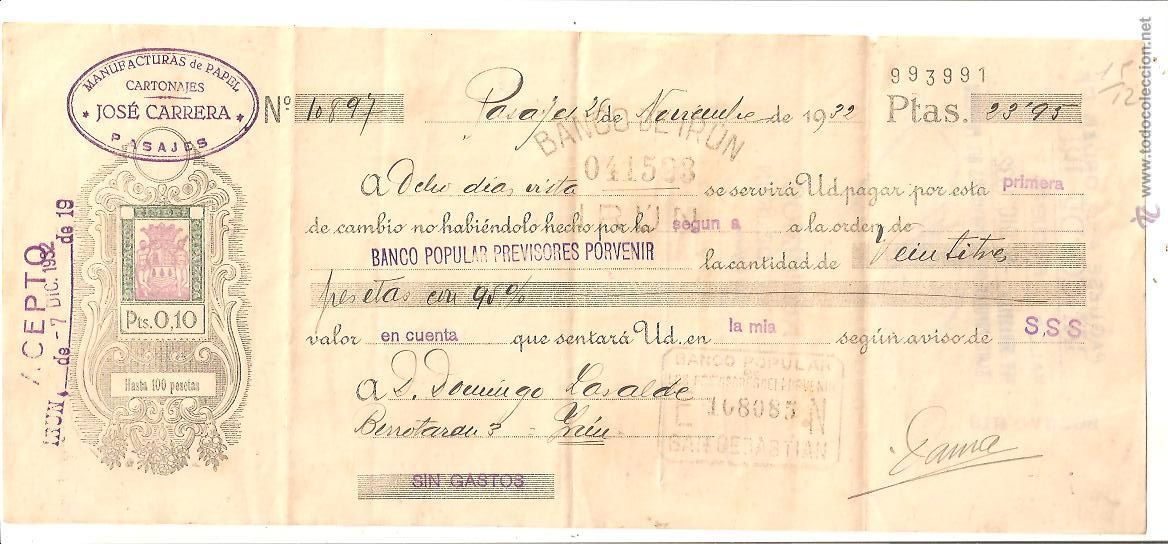 MANUFACTURAS de PAPEL
CARTONAJES
* JOSÉ CARRERA *
PASAJES
993991
15/12
Nº 10897 Pasajes de Noviembre de 1932 Ptas. 23'95
BANCO DE IRUN
041503
IRUN
A Ocho días vista se servirá Ud pagar por esta primera
de cambio no habiéndolo hecho por la segun a a la orden de
BANCO POPULAR PREVISORES PORVENIR la cantidad de Veintitres
pesetas con 95%
valor en cuenta que sentará Ud. en la mia según aviso de S S S
A D. Domingo
Berrotaran 3 - Irún
SIN GASTOS
BANCO POPULAR
DE
LOS PREVISORES DEL PORVENIR
E 108085 N
SAN SEBASTIAN
Pts. 0,10
Hasta 100 pesetas
ACEPTO
IRUN, de -7 DIC. 1932 de 19
www.todocoleccion.net
tc